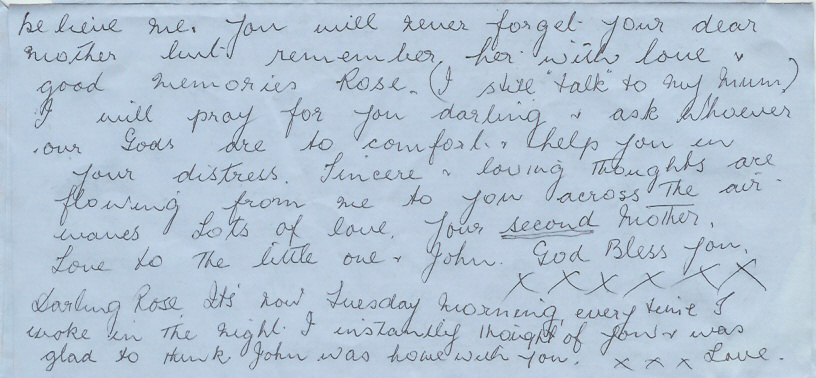 believe me. You will never forget your dear
mother but remember her with love &
good memories Rose. (I still "talk" to my Mum)
I will pray for you darling & ask whoever
our Gods are to comfort & help you in
your distress. Sincere & loving thoughts are
flowing from me to you across The air
waves Lots of love. Your second Mother.
Love to The little one & John. God Bless you.
X X X X X X
Darling Rose It's now Tuesday morning, every time I
woke in The night I instantly thought of you & was
glad to think John was home with you. x x x Love.